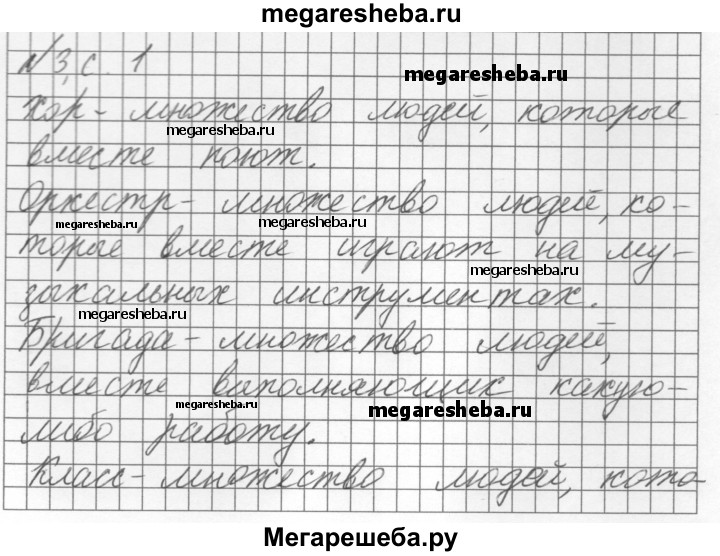 megaresheba.ru
№3, с. 1
megaresheba.ru
Хор- множество людей, которые
megaresheba.ru
вместе поют.
Оркестр- множество людей, ко-
megaresheba.ru
megaresheba.ru
торые вместе играют на му-
megaresheba.ru
зыкальных инструментах.
megaresheba.ru
Бригада- множество людей,
вместе выполняющих какую-
megaresheba.ru
megaresheba.ru
либо работу.
Класс- множество людей, кото-
Мегарешеба.ру